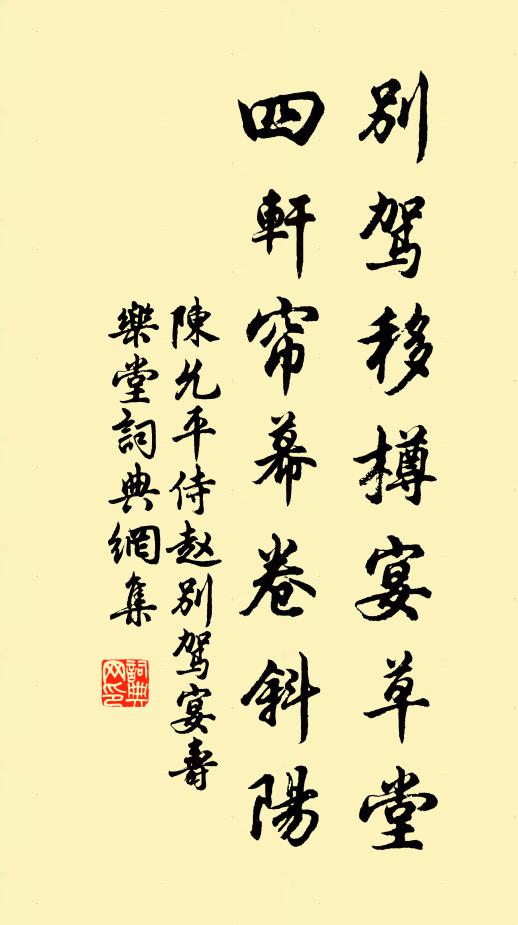 別駕移樽宴草堂
四軒帘幕卷斜陽
陳允平侍赵別駕宴壽
樂堂詞典網集
詞典网印